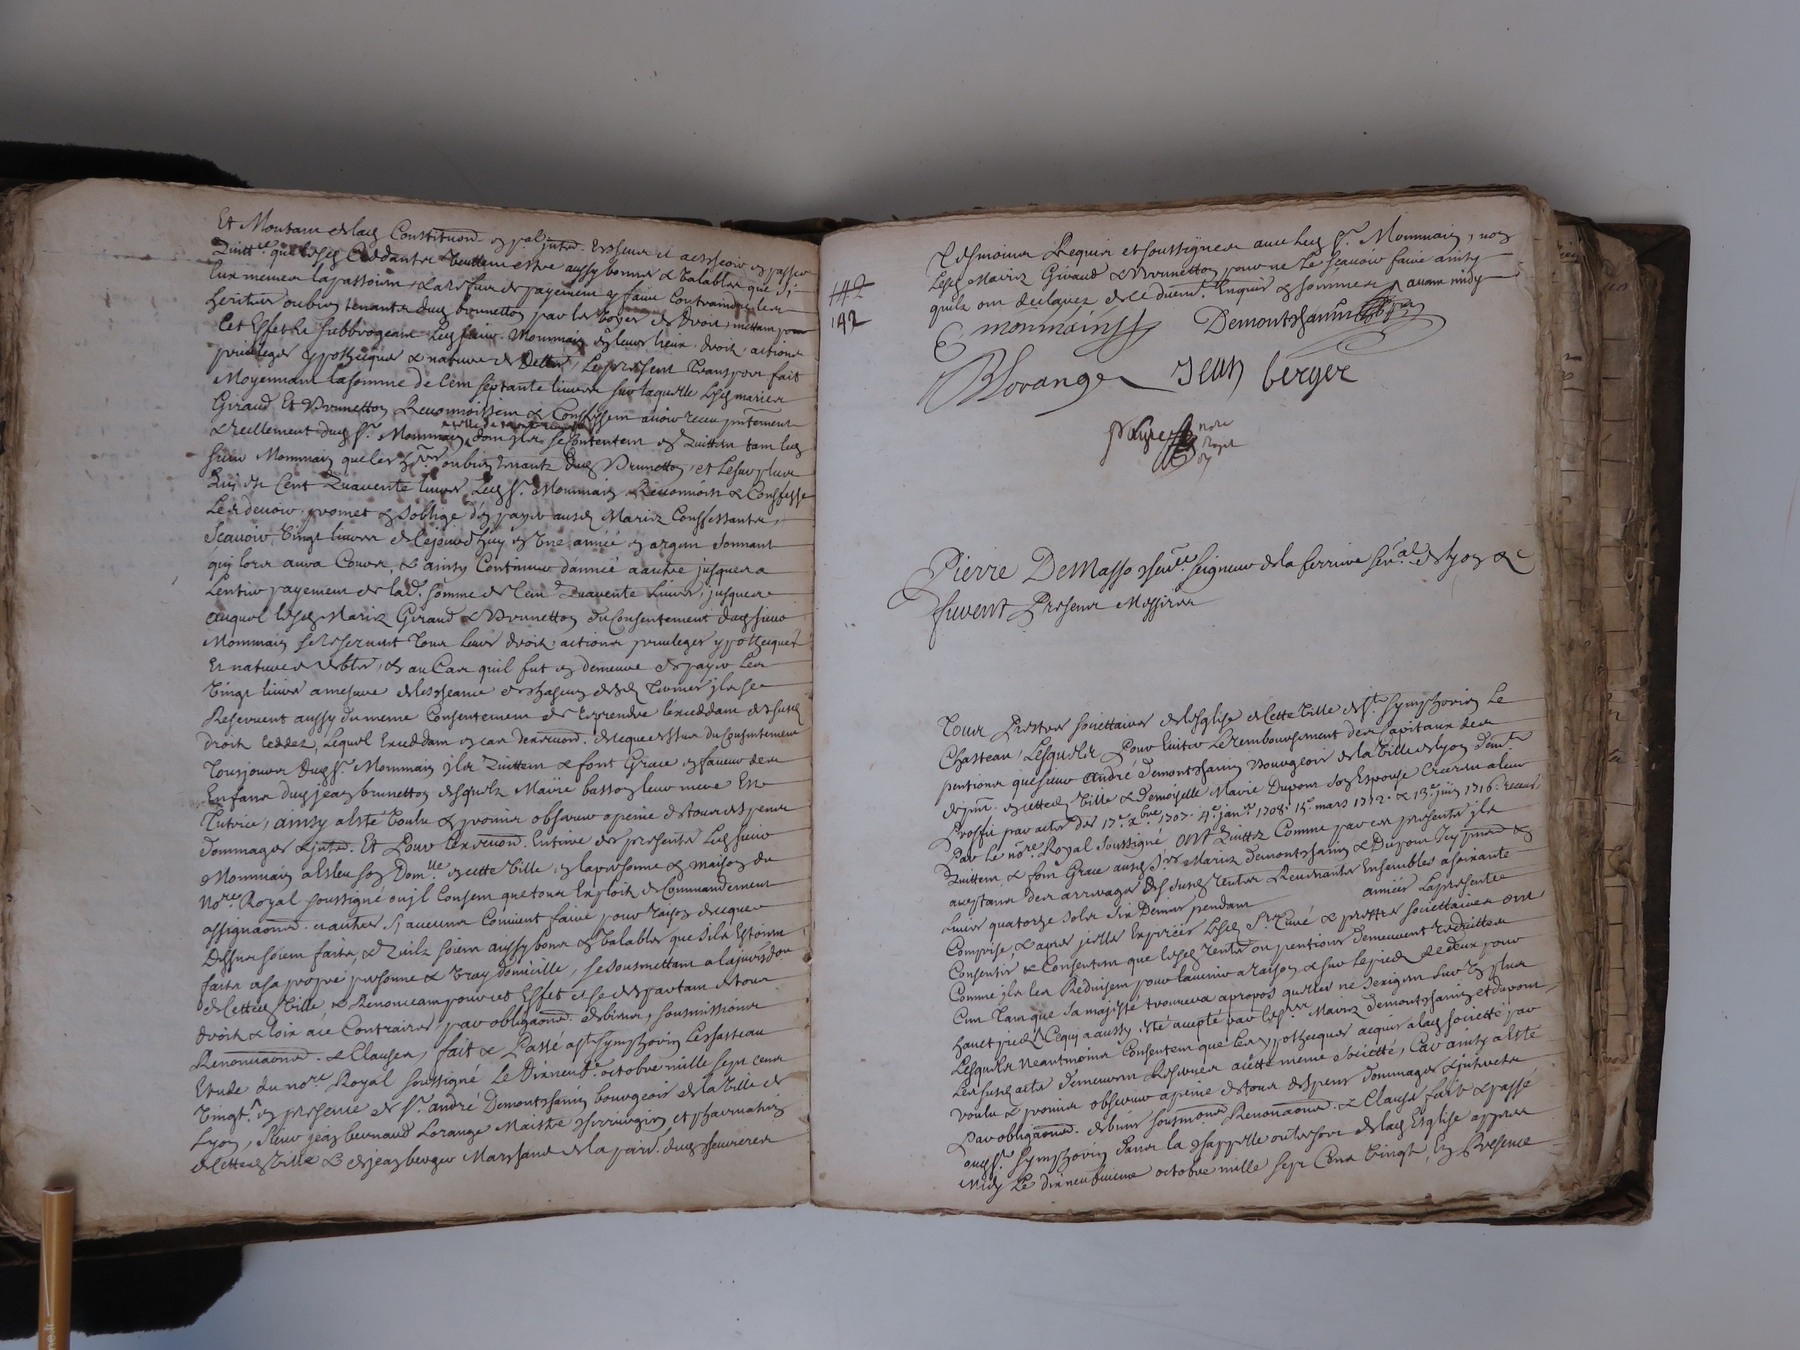 Et Montam de lad Constitu͠on & pal jnter. Escheus et aescheoir & passer
Quittce que lesd Ceddantz Veullent estre aussy bonnes & Valables que Si
Eux mesmes la passoien, & a deffaut de payement y faire Contraindre les
heritiers ou bien tenants dud brunetton par les Voyes de droit, mettam pour
Cet Effet & subbrogeant led sieur Mommain en leurs lieux droit, actions
privileges & ypotheques & nature de debtes, Le present transport fait
Moyennam la somme de Cent septante livres sur laquelle lesd mariez
Giraud Et Brunetton Reconnoissem & Confessem avoir receu pntement
& reellement dud Sr Mommain, dont jls se Contentem & Quittem tam led
sieur Mommain que les hers ou bien tenantz dud Brunetton, et le surplus
qui est Cent Quarente livres led Sr Mommain Reconnoist & Confesse
Les devoir promet & soblige den payer ausd Mariez Confessantz,
Scavoir Vingt livres de Cejourdhuy en Une année & argen donnant
qui lors aura Couru, & ainsy Continuer dannée a autre jusques a
Lentier payement de lad somme de Cent Quarente livres, jusques
auquel lesd Mariez Giraud & Brunetton du Consentement dud sieur
Mommain se Reservent Tous leurs droit, actions privileges ypotheques
Et nature de debtes, & au Cas quil fut en demeure de payer les
Vingt livres a mesure de lescheance de chascun desd Termes jls se
Reservent aussy du meme Consentement de Reprendre lexceddam desusd
droit Ceddez, lequel Exceddam
Tousjours dud Sr Mommain jls Quittem & font Grace en faveur des
Enfans dud jean brunetton desquels Marie basson leur mere Est
Tutrice, ainsy a Esté Voulu & promis observer a peine de tous despens
dommages & jnter. Et Pour Lexecu͠on Entiere des presentes Led sieur
Mommain a Esleu son Domlle en cette Ville en la personne & maison du
Nore Royal soussigné ou jl Consent que tous Exploit de Commandement
assigna͠on & autres
Dessus soient faites, & quils soient aussy bons & Valables que sils Estoient
faits a sa propre personne & Vray domicille, se soumettam a la jurisdon
de Cetted Ville & Renonceam pour cet Effet et se despartam de tous
droit & loix a ce Contraires, par obliga͠ons de biens, soumissions
Renoncia͠ons & Clauses, fait & Passé a St Symphorien Le Chasteau
Etude du nore Royal soussigné Le Dixneufe octobre mille sept cens
Vingt, en presence de Sr andré Demontchanin bourgeois de la Ville de
Lyon, Sieur jean bernard Lorange Maistre chirurgien et pharmatien
de Cetted Ville & de jean berger Marchand de la parr. dud
Tesmoins Requis et soussignez avec led Sr Mommain, non
Lesd Mariez Giraud & Brunetton pour ne le Scavoir faire ainsy
quils ont declarez de ce duemt Enquis & sommez avant midy
142
142
Mommain
Demontchanin
JBLorange
Jean berger
nore
Royal
Pierre DeMasso chevr. seigneur de la ferriere senal. de lyon &c
furent Presens Messires
Tous Prestres societtaires de lesglise de Cette Ville de St Symphorien Le
Chasteau, Lesquels Pour Eviter Le rembourcement des Capitaux des
pentions que sieur andré demontchanin bourgeois de la Ville de Lyon demt
de pnt en cetted Ville & Demoiselle Marie Dupont son Espouse Creerent a leur
Proffit par actes des 17e xbre 1707. 4e janer 1708. 15e mars 1712. & 13e juin 1716. receus
Par Le nore Royal soussigné, ont Quitté Comme par ces presentes jls
Quittem & font Grace ausd srs Mariez Demontchanin & Dupont
aceptans des arrerages desd susd rentes Revenantes Ensembles a soixante
Livres quatorze sols six Deniers pendam annees Lapresente
Comprise, & apres jcelles Expirées Lesd Srs Curé & prestres societtaires ont
Consentis & Consentem que lesd rentes ou pentions demeurent Reduittes
Comme jls les Reduisent pour lavenir a raison & sur le pied de deux pour
Cent Tam que sa majesté trouvera a propos quelles ne sexigem sur Un plus
haut pied, Cequi a aussy Esté acepté par lesd srs Mariez Demontchanin et dupont
Lesquels Neantmoins Consentem que Les ypotheques acquis a lad societté par
Les susd actes demeurem Reservés a cette meme societté, Car ainsy a Esté
Voulu & promis observer a peine de tous despens dommages & jnterets
Par obliga͠on de biens soumi͠ons Renoncia͠ons & Clauses fait & passé
aud St Symphorien Dans la Chappelle
Midy Le dixneufvieme octobre mille sept Cens Vingt, En Presence